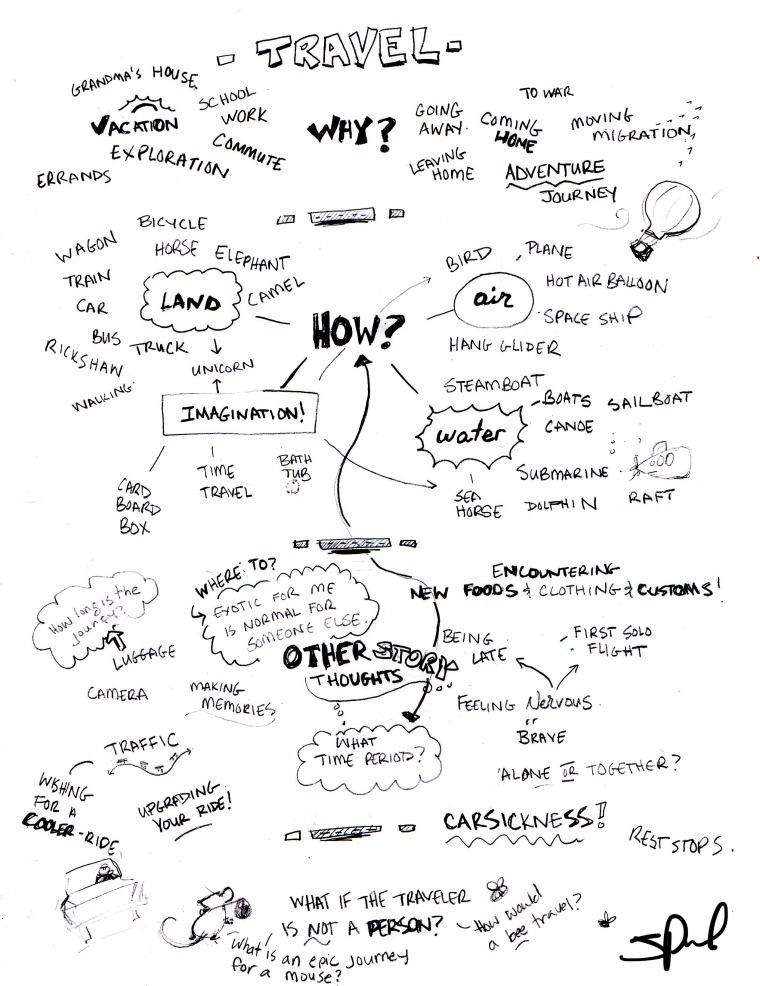 - TRAVEL -
GRANDMA'S HOUSE
SCHOOL
VACATION
WORK
EXPLORATION
COMMUTE
ERRANDS
WHY?
GOING
AWAY
TO WAR
COMING
HOME
MOVING
MIGRATION
LEAVING
HOME
ADVENTURE
JOURNEY
BICYCLE
WAGON
HORSE
ELEPHANT
TRAIN
LAND
CAMEL
CAR
BUS
RICKSHAW
TRUCK
UNICORN
WALKING
IMAGINATION!
CARD
BOARD
BOX
TIME
TRAVEL
BATH
TUB
HOW?
BIRD
PLANE
air
HOT AIR BALLOON
SPACE SHIP
HANG GLIDER
STEAMBOAT
BOATS
SAILBOAT
water
CANOE
SUBMARINE
SEA
HORSE
DOLPHIN
RAFT
How long is the
journey?
LUGGAGE
CAMERA
MAKING
MEMORIES
WHERE TO?
EXOTIC FOR ME
IS NORMAL FOR
SOMEONE ELSE.
ENCOUNTERING
NEW FOODS & CLOTHING & CUSTOMS!
OTHER STORY
THOUGHTS
BEING
LATE
FIRST SOLO
FLIGHT
FEELING Nervous
or
BRAVE
WHAT
TIME PERIOD?
'ALONE OR TOGETHER?
TRAFFIC
WISHING
FOR A
COOLER-RIDE
UPGRADING
YOUR RIDE!
CARSICKNESS!!
REST STOPS.
WHAT IF THE TRAVELER
IS NOT A PERSON?
How would
a bee travel?
What
is an epic journey
for a mouse?